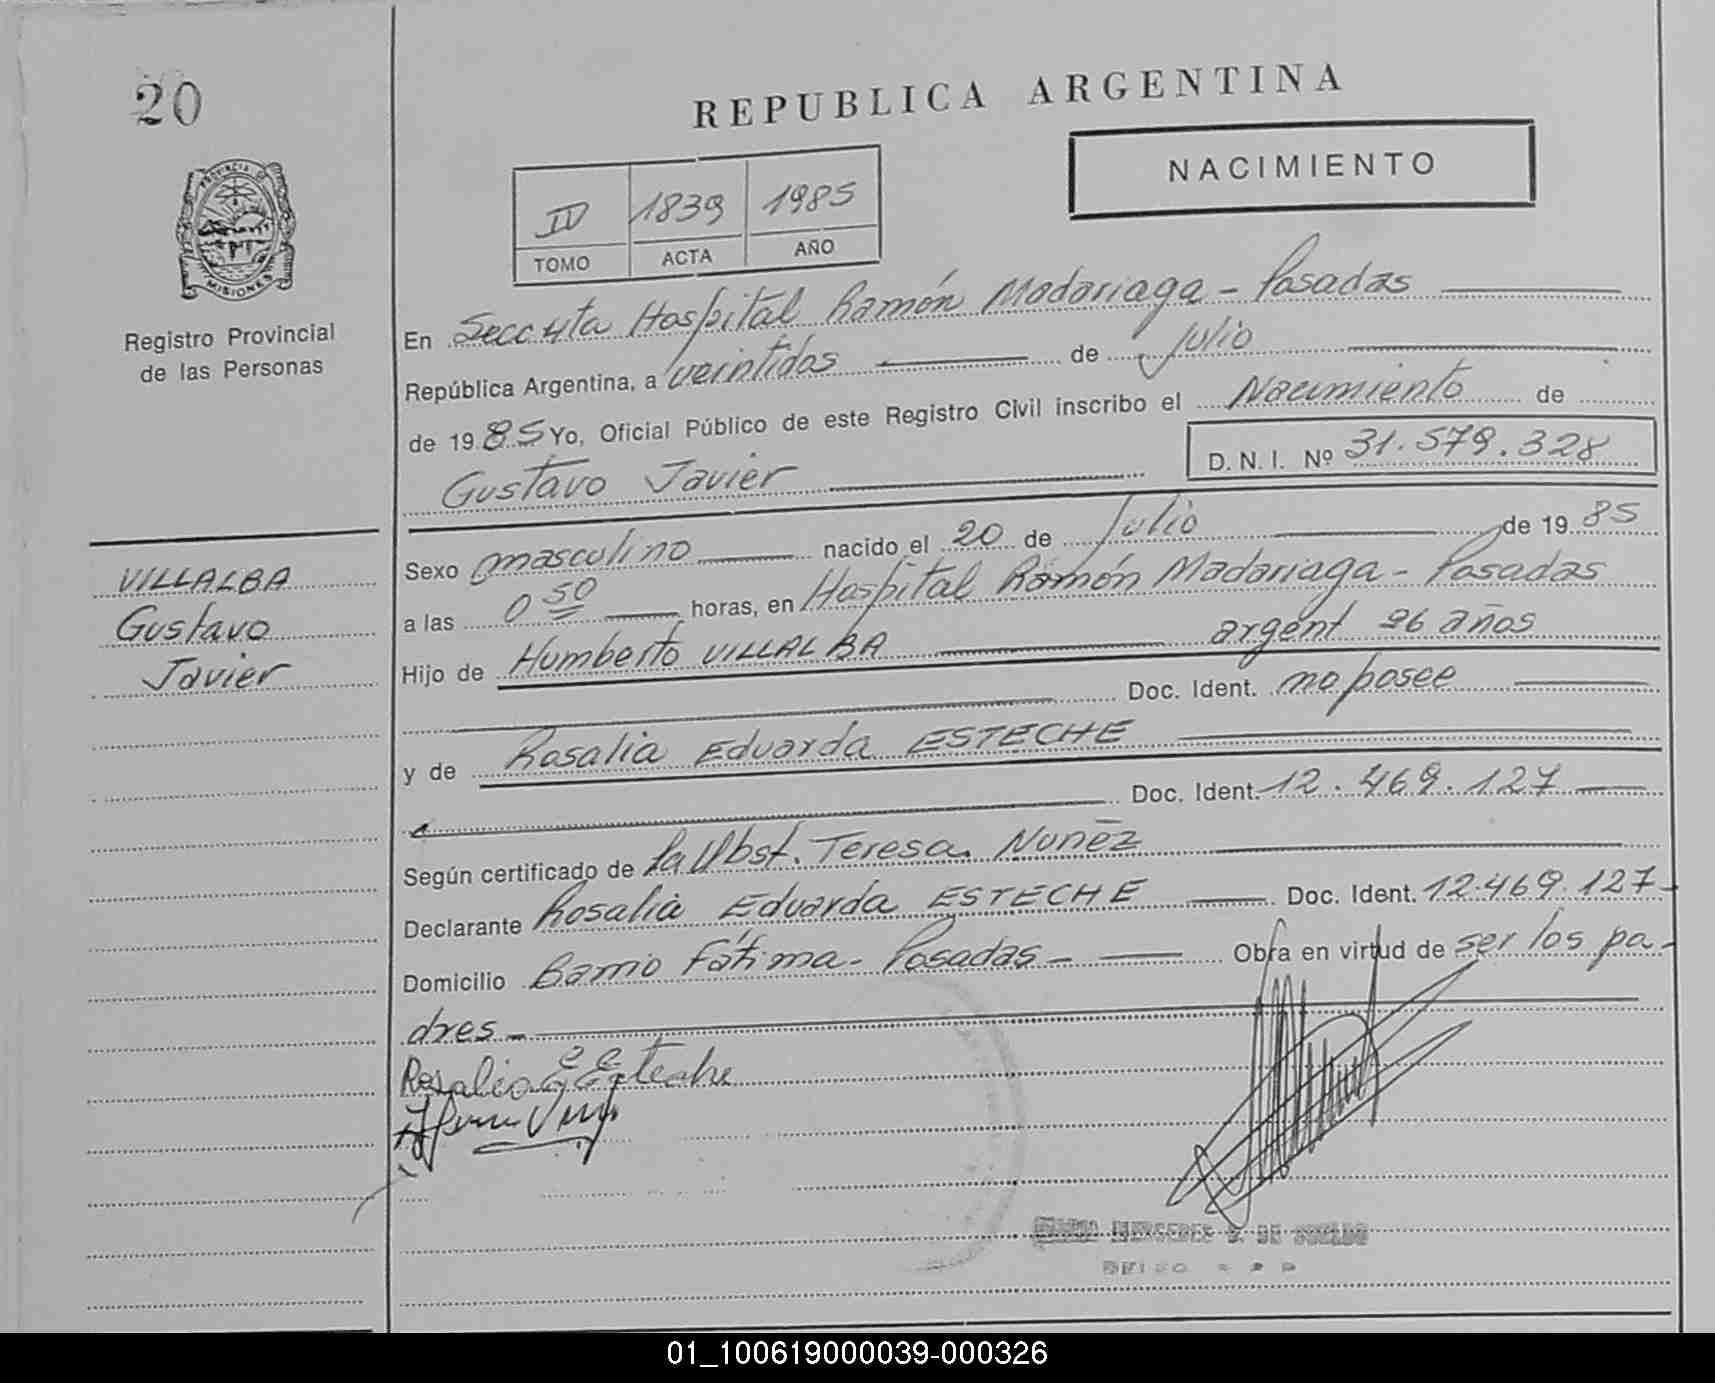 20
REPUBLICA ARGENTINA
NACIMIENTO
IV 1839 1985
TOMO ACTA AÑO
PROVINCIA DE
MISIONES
Registro Provincial
de las Personas
En Secc 4ta Hospital Ramón Madariaga - Posadas
República Argentina, a veintidos de Julio
de 1985 Yo, Oficial Público de este Registro Civil inscribo el Nacimiento de
Gustavo Javier D. N. I. Nº 31.579.328
VILLALBA
Gustavo
Javier
Sexo masculino nacido el 20 de Julio de 1985
a las 0 50 horas, en Hospital Ramón Madariaga - Posadas
Hijo de Humberto VILLALBA argent 26 años
Doc. Ident. no posee
y de Rosalia Eduarda ESTECHE
Doc. Ident. 12.469.127
Según certificado de la Obst. Teresa Nuñez
Declarante Rosalia Eduarda ESTECHE Doc. Ident. 12.469.127-
Domicilio Barrio Fátima - Posadas - Obra en virtud de ser los pa-
dres -
Rosalia E Esteche
MERCEDES DE
01_100619000039-000326